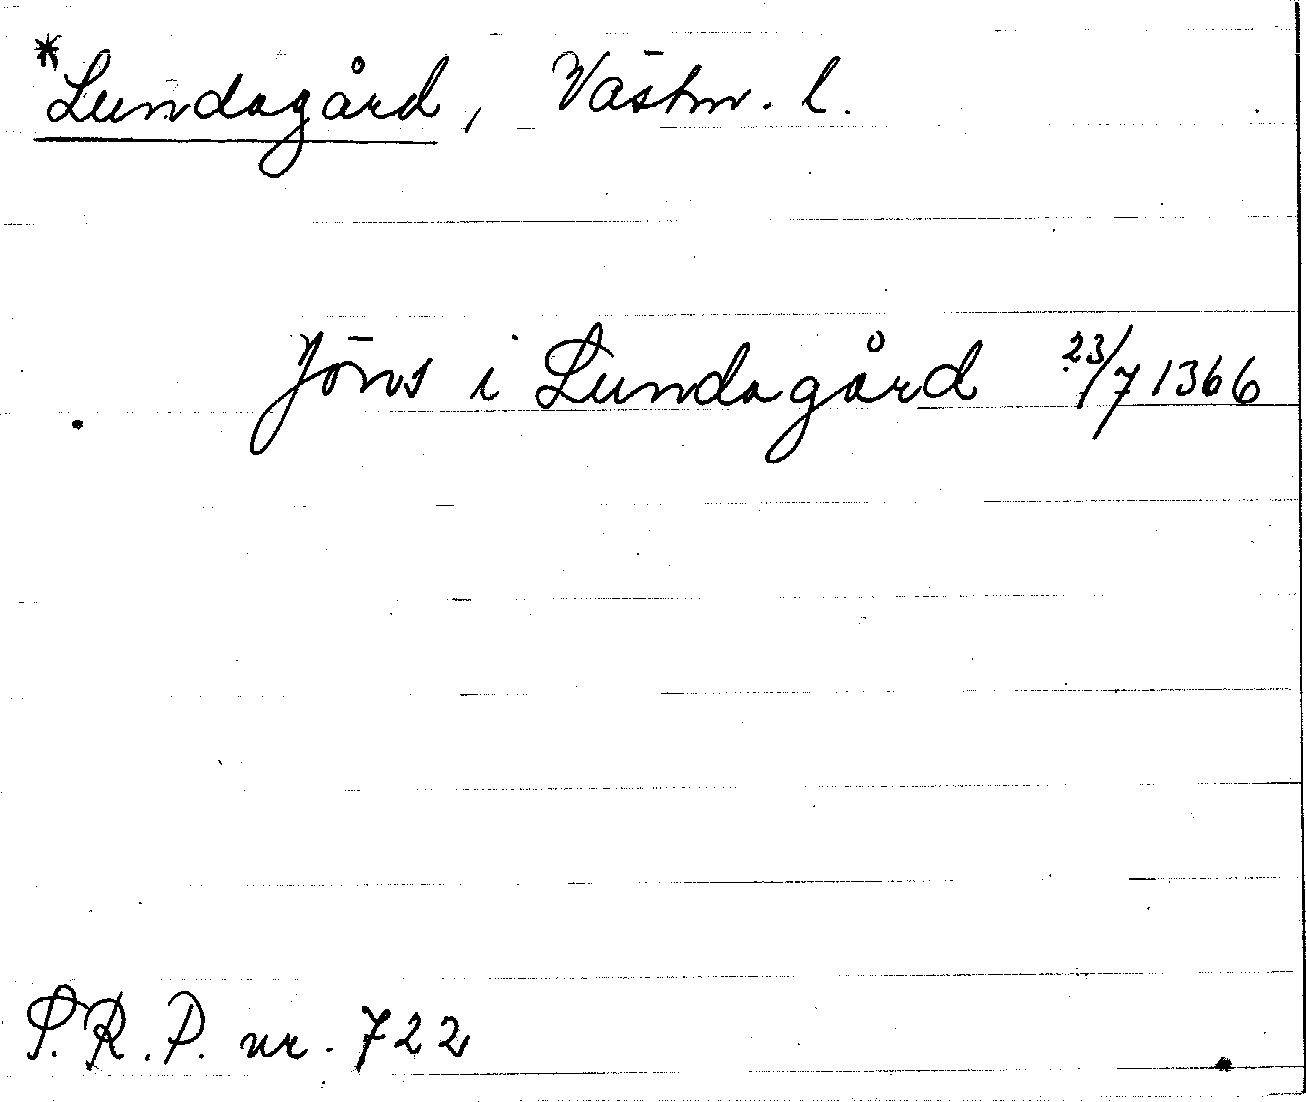 *Lundagård, Västm. l.
Jöns i Lundagård 23/7 1366
S.R.P. nr. 722